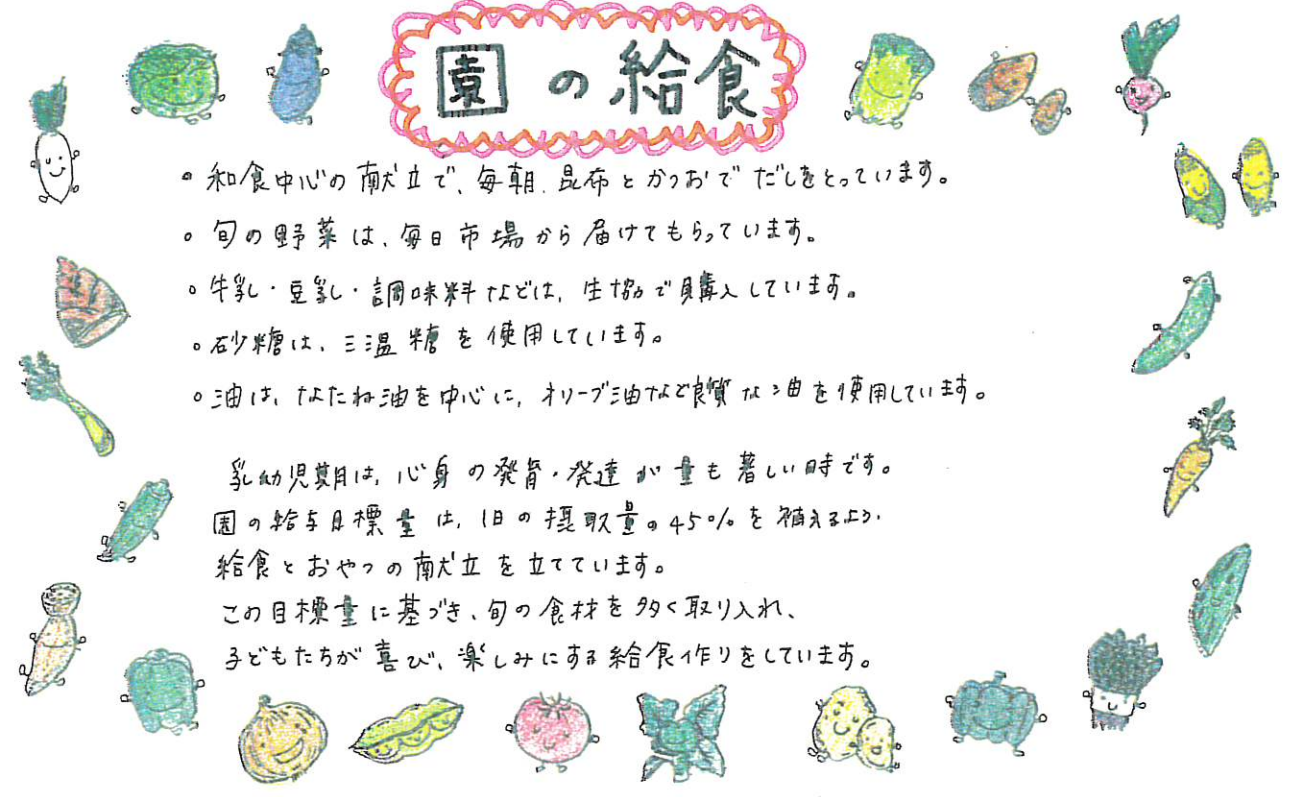 園の給食
。和食中心の献立で、毎朝、昆布とかつおでだしをとっています。
。旬の野菜は、毎日市場から届けてもらっています。
。牛乳・豆乳・調味料などは、生協で購入しています。
。砂糖は、三温糖を使用しています。
。油は、なたね油を中心に、オリーブ油など良質な油を使用しています。
乳幼児期は、心身の発育・発達が量も著しい時です。
園の給与目標量は、1日の摂取量の45%を補えるよう、
給食とおやつの献立を立てています。
この目標量に基づき、旬の食材を多く取り入れ、
子どもたちが喜び、楽しみにする給食作りをしています。